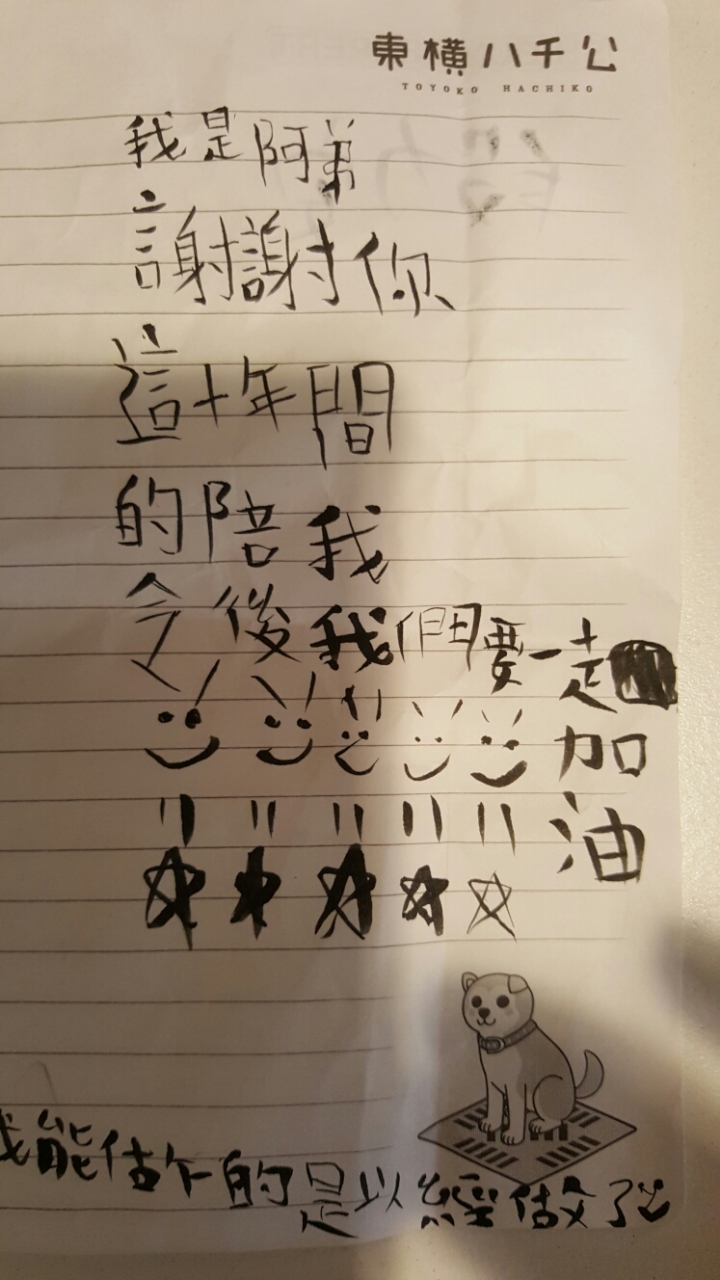 東横ハチ公
TOYOKO HACHIKO
我是阿弟
謝謝你
這十年間
的陪我
今後我們要一走
加
油
我能估乍的是以經做了